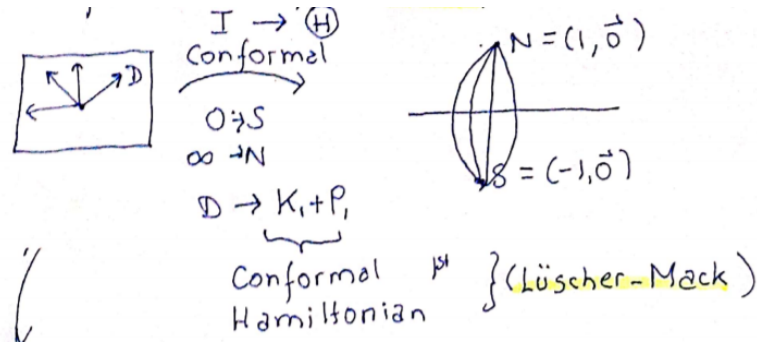 I → Ⓗ
Conformal
D
O → S
∞ → N
D → K₁+P₁
Conformal
Hamiltonian
} (Lüscher-Mack)
N = (1, 0⃗)
S = (-1, 0⃗)